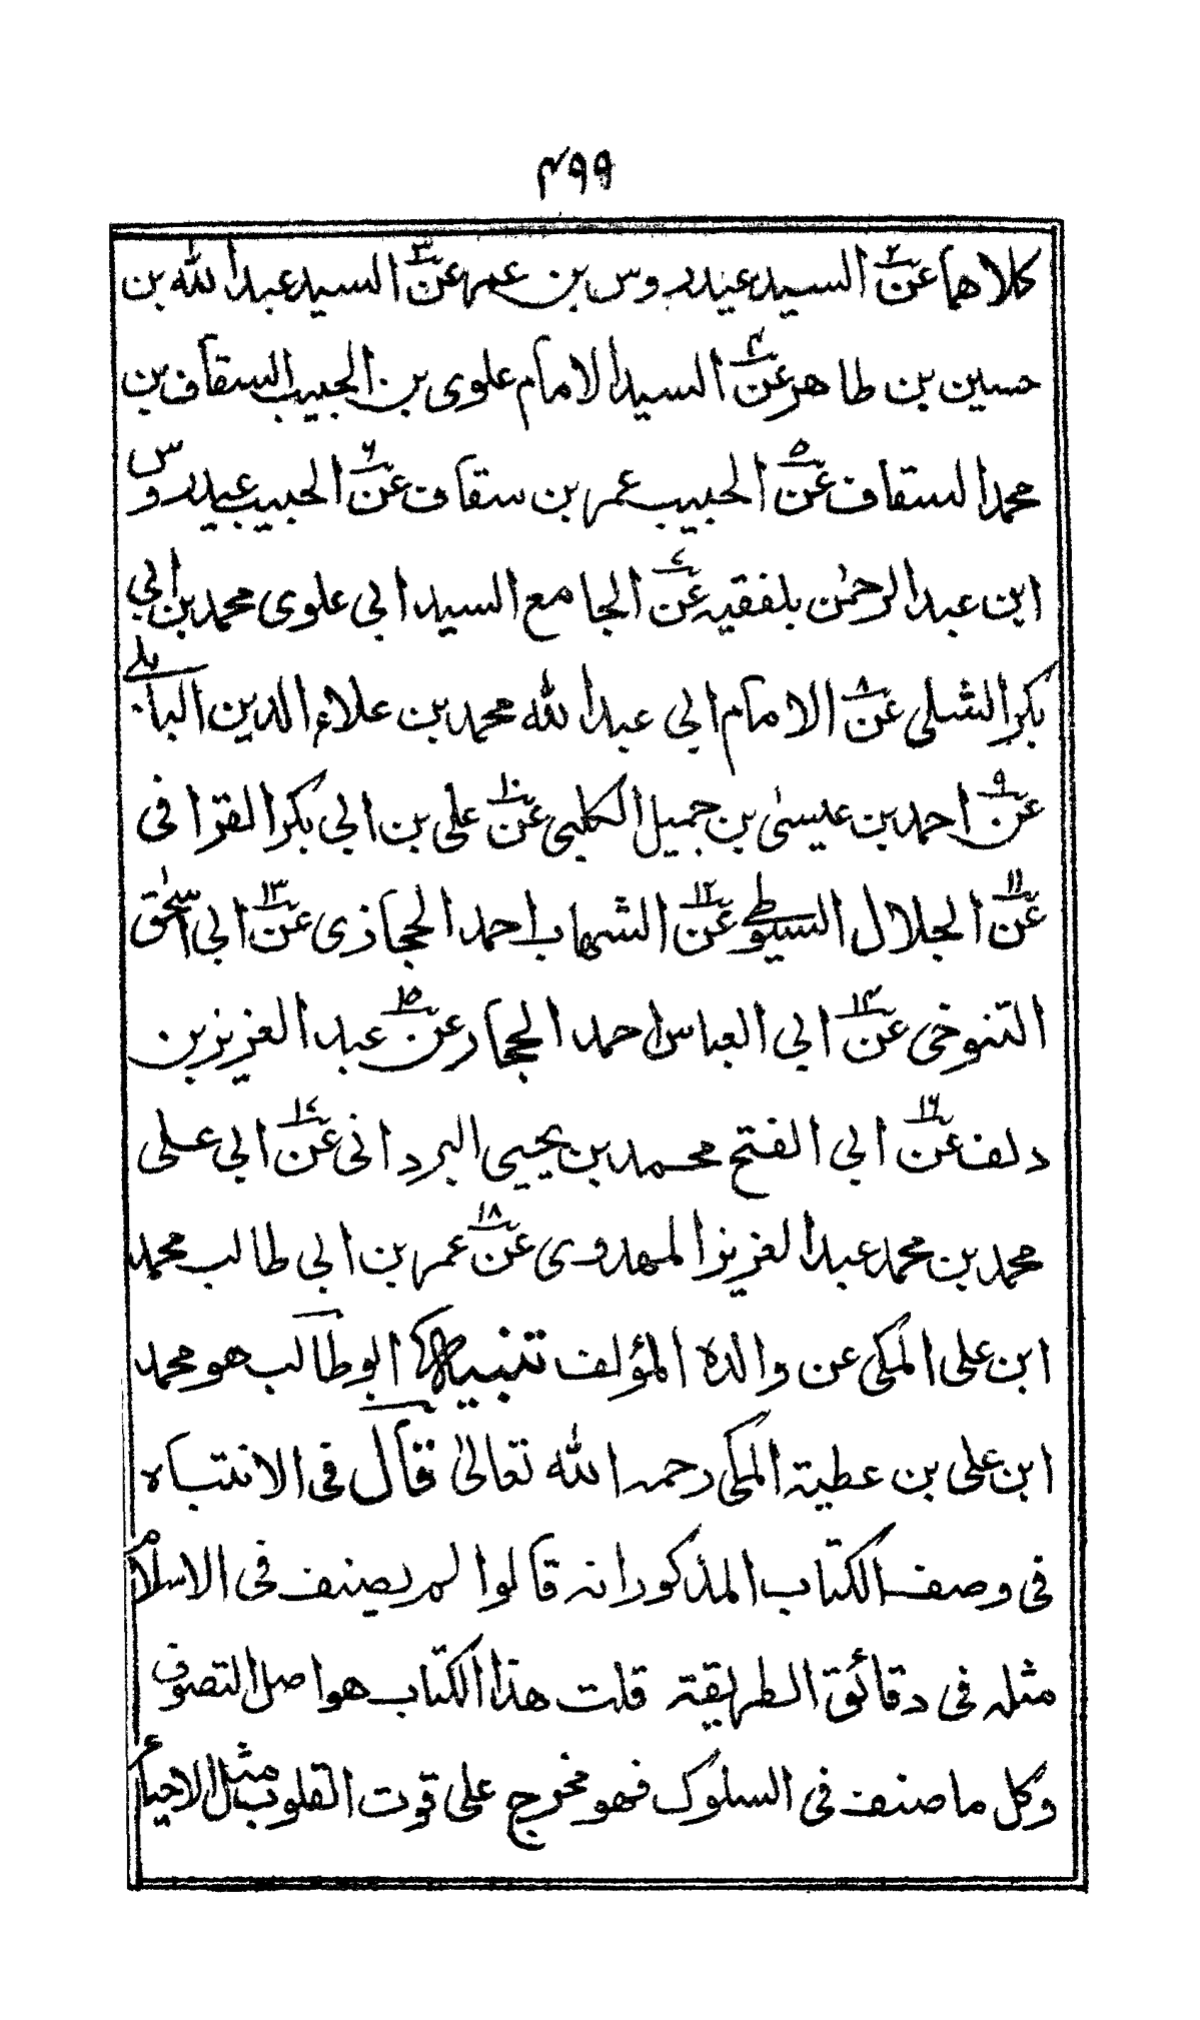 ٤٩٩
كلاهما عن٢ السيد عيدروس بن عمر عن٣ السيد عبد الله بن
حسين بن طاهر عن٤ السيد الامام علوى بن الحبيب السقاف بن
محمد السقاف عن٥ الحبيب عمر بن سقاف عن٦ الحبيب عيدروس
ابن عبد الرحمٰن بلفقيه عن٧ الجامع السيد ابي علوى محمد بن ابي
بكر الشلى عن٨ الامام ابي عبد الله محمد بن علاء الدين البابلى
عن٩ احمد بن عيسىٰ بن جميل الكلبى عن١٠ على بن ابي بكر القرافى
عن١١ الجلال السيوطى عن١٢ الشهاب احمد الحجازى عن١٣ ابي اسحٰق
التنوخى عن١٤ ابي العباس احمد الحجار عن١٥ عبد العزيز بن
دلف عن١٦ ابي الفتح محمد بن يحيى البردانى عن١٧ ابي على
محمد بن محمد عبد العزيز المهدوى عن١٨ عمر بن ابي طالب محمد
ابن على المكى عن والده المؤلف تنبيه ابو طالب هو محمد
ابن على بن عطية المكى رحمه الله تعالىٰ قال فى الانتباه
فى وصف الكتاب المذكور انه قالوا لم يصنف فى الاسلام
مثله فى دقائق الطريقة قلت هذا الكتاب هو اصل التصوف
وكل ما صنف فى السلوك فهو مخرج على قوت القلوب مثل الاحياء